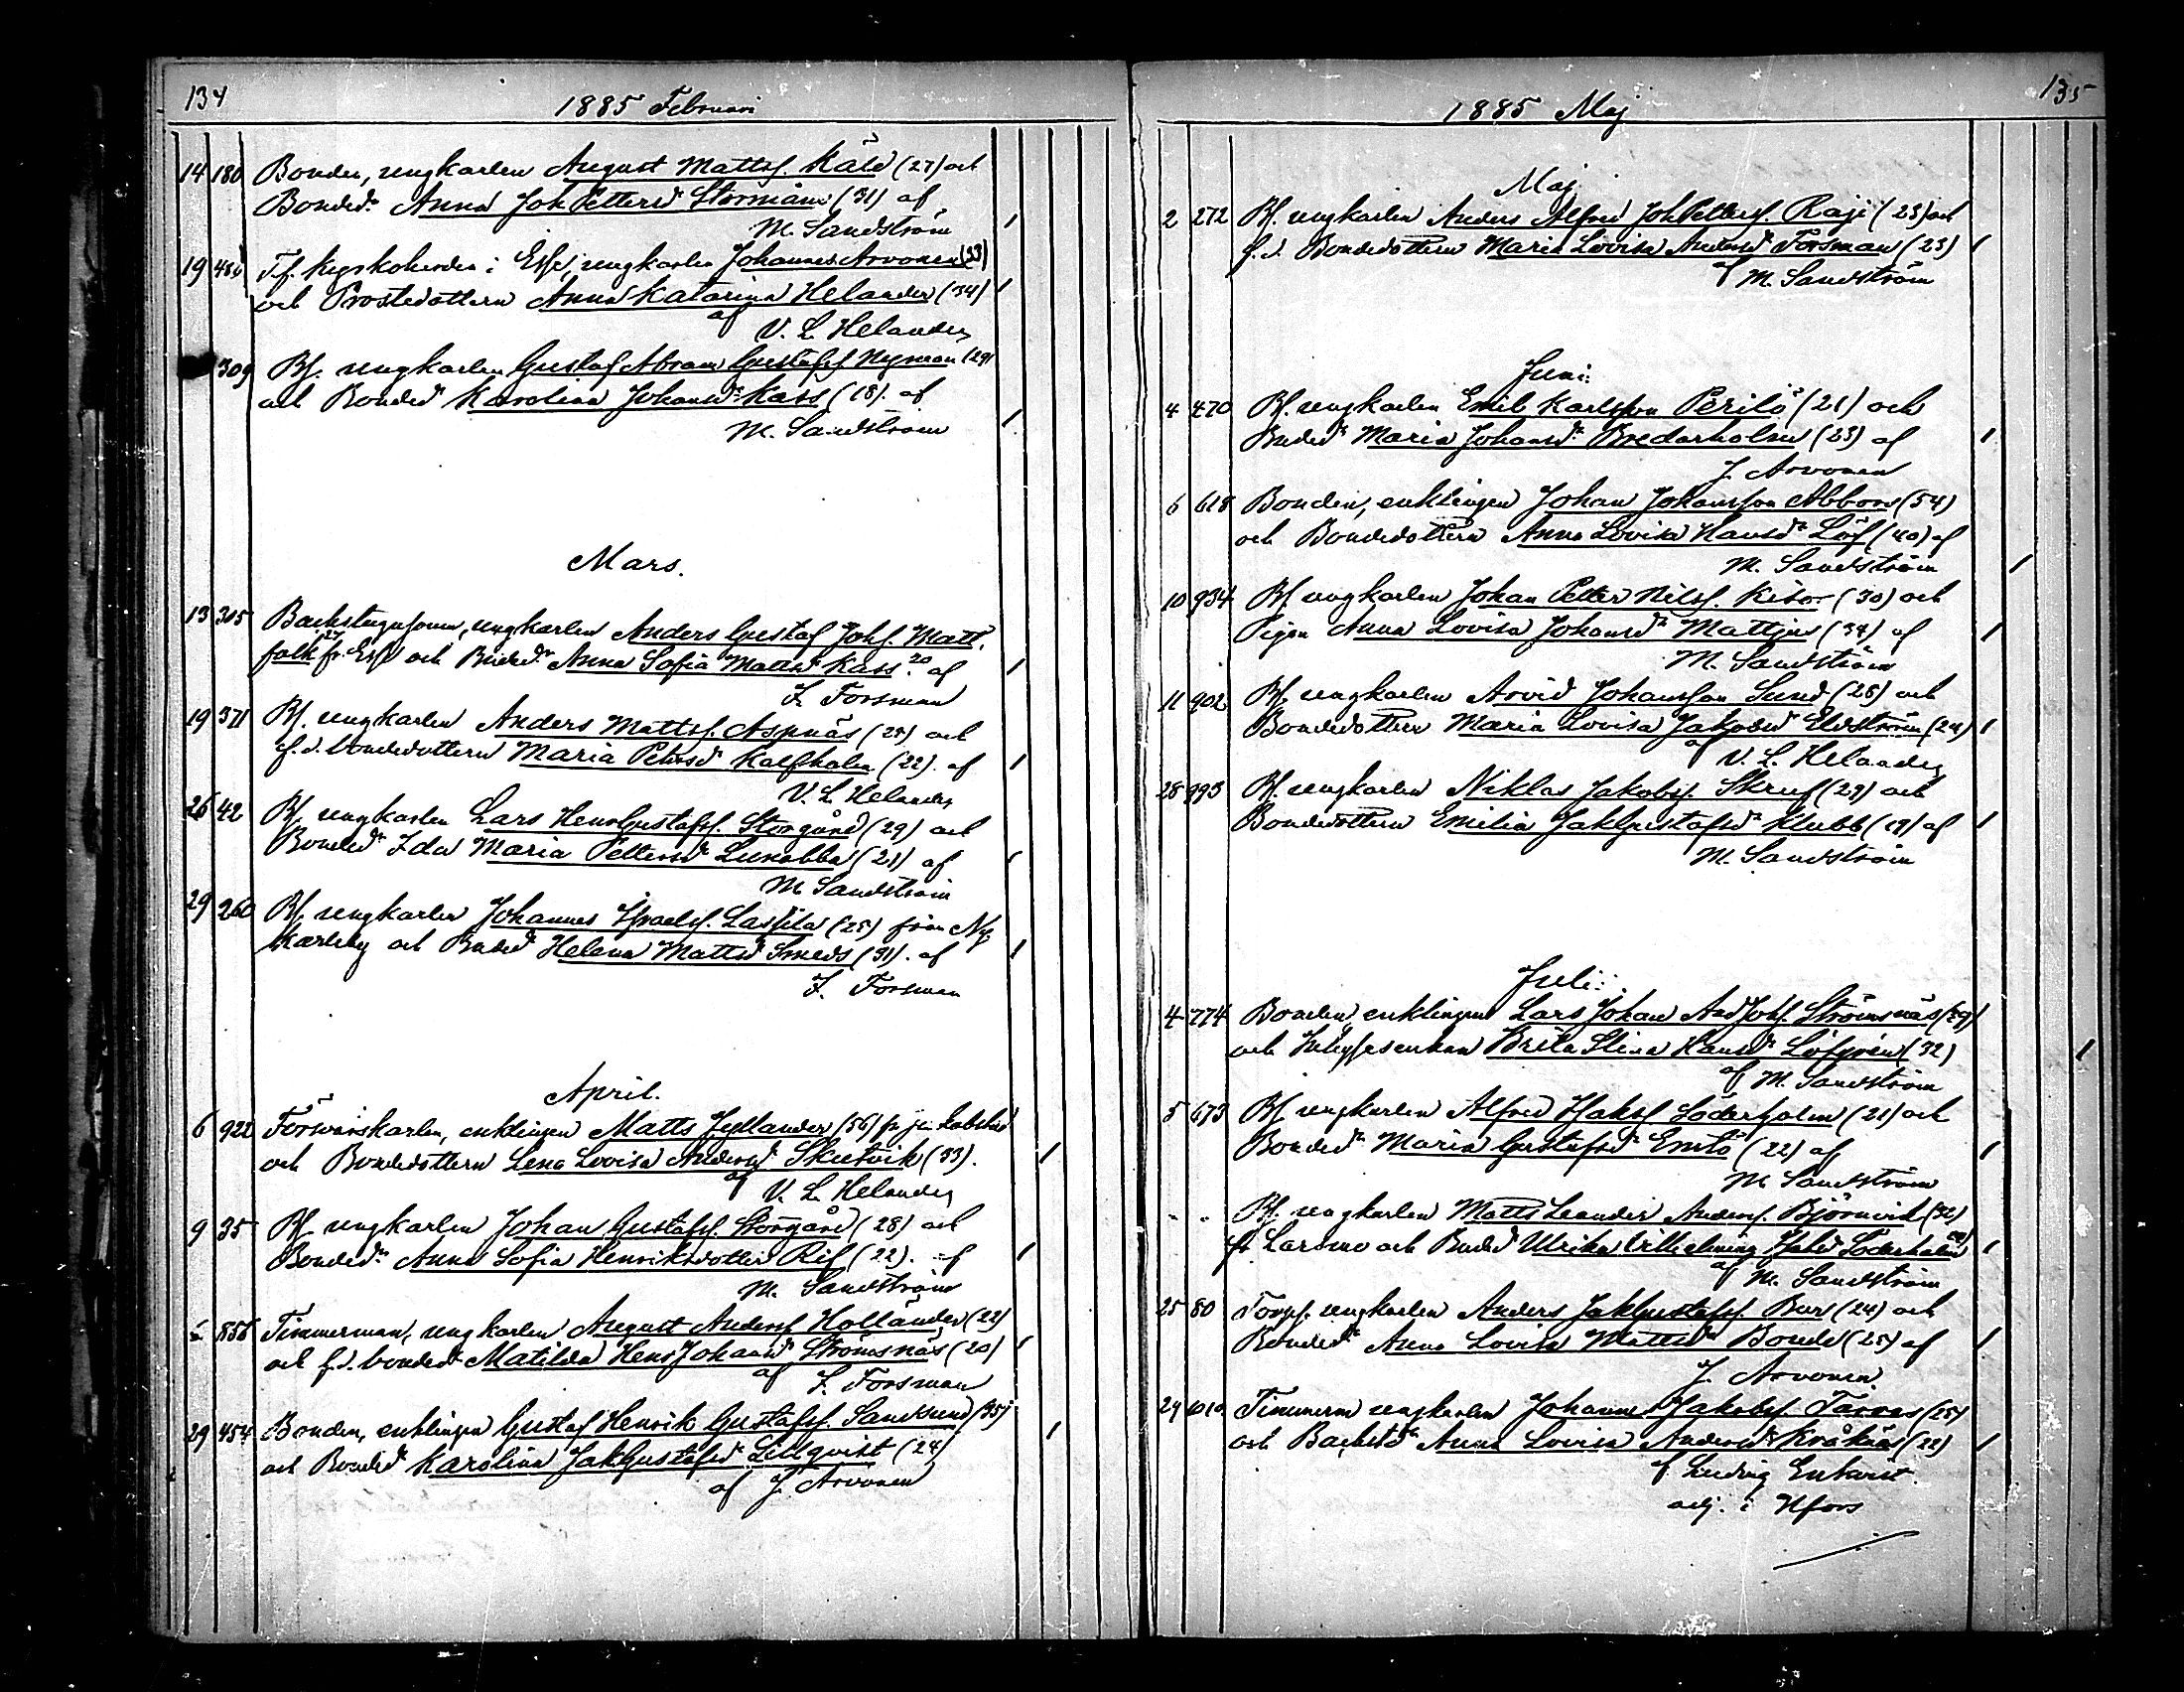 134
1885 Februari
14 180 Bonden, ungkarlen August Mattss. Käld (27) och
Bonded:r Anna Joh Petters dr (31) af
M. Sandström
19 T.f. Kyrkoherden i Esse, ungkarlen Johannes Arvonen (33)
och Prostedottern Anna Katarina Helander (34)
af V. L. Helander
309 Bs. ungkarlen Gustaf Abram Gustafss Nyman (29)
och Bonded Karolina Johansdr Kass (18). af
M. Sandström
Mars.
13 305 Backstugusonen, ungkarlen Anders Gustaf Johs. Matt.
falk 27 fr. Esse och Bonded:r Anna Sofia Mattsdr Kass 20. af
F. Forsman
19 371 Bs. ungkarlen Anders Mattss. Aspnäs (25) och
f.d. bondedottern Maria Petersdr Kalfholm (22). af
V. L. Helander
26 42 Bs. ungkarlen Lars HenrGustafss. Storgård (29) och
Bonded:r Ida Maria Pettersdr Lunabba (21) af
M Sandström
29 260 Bs. ungkarlen Johannes Israelss. Lassila (25) från Ny
Karleby och Bonded Helena Mattsdr Smeds (31). af
F. Forsman
April.
6 922 Försvarskarlen, enklingen Matts Jyllander (56) fr
och Bondedottern Lena Lovisa Andersdr Skutvik (33).
af V. L. Helander
9 35 Bs ungkarlen Johan Gustafss. Storgård (28) och
Bonded:r Anna Sofia Henriksdotter Rif (22). af
M. Sandström
856 Timmerman, ungkarlen August Anderss Holländer (22)
och f.d. bonded:r Matilda HenrJohansdr Strömsnäs (20)
af F. Forsman
29 454 Bonden, enklingen Gustaf Henrik Gustafss. Sandsund (35)
och Bonded Karolina JakGustafsdr Lillqvist (24)
af J. Arvonen
135
1885 Maj
Maj.
2 272 Bs. ungkarlen Anders Alfred Joh Petterss. Raji (23) och
f.d. Bondedottern Maria Lovisa Andersdr Forsman (23)
af M. Sandström
Juni:
4 470 Bs. ungkarlen Emil Karlsson Perilö (21) och
Bonded:r Maria Johansdr Bredarholm (23) af
J. Arvonen
6 618 Bonden, enklingen Johan Johansson Abbors (54)
och Bondedottern Anna Lovisa Hansdr Löf (40) af
M. Sandström
10 934 Bs. ungkarlen Johan Petter Nilss. Kisor (30) och
Pigan Anna Lovisa Johansdr Mattjus (34) af
M. Sandström
11 902 Bs. ungkarlen Arvid Johansson Sund (25) och
Bondedottern Maria Lovisa Jakobsdr Eldström (24)
af V. L. Helander
28 993 Bs. ungkarlen Niklas Jakobss. Skruf (29) och
Bondedottern Emilia JakGustafsdr Klubb (19) af
M. Sandström
Juli:
4 774 Bonden, enklingen Lars Johan AndJohs. Strömsnäs (29)
och Inhysesenkan Brita Stina Hansdr Löfgrén (32)
af M. Sandström
5 673 Bs. ungkarlen Alfred HJakss Söderholm (21) och
Bonded:r Maria Gustafsdr Emilö (22) af
M. Sandström
- - Bs. ungkarlen Matts Leander Anderss. Björnvik (32)
fr Larsmo och Bonded Ulrika Vilhelmina HJaksd Söderholm
af M. Sandström
25 80 Torps. ungkarlen Anders JakGustafss. Bur (24) och
Bonded:r Anna Lovisa Mattsdr Bonde (25) af
J. Arvonen
29 1010 Timmerm ungkarlen Johannes Jakobss. Tarvas (25)
och Backstdr Anna Lovisa Andersdr Kråknäs (22)
af Ludvig Enkvist.
adj. i Hfors